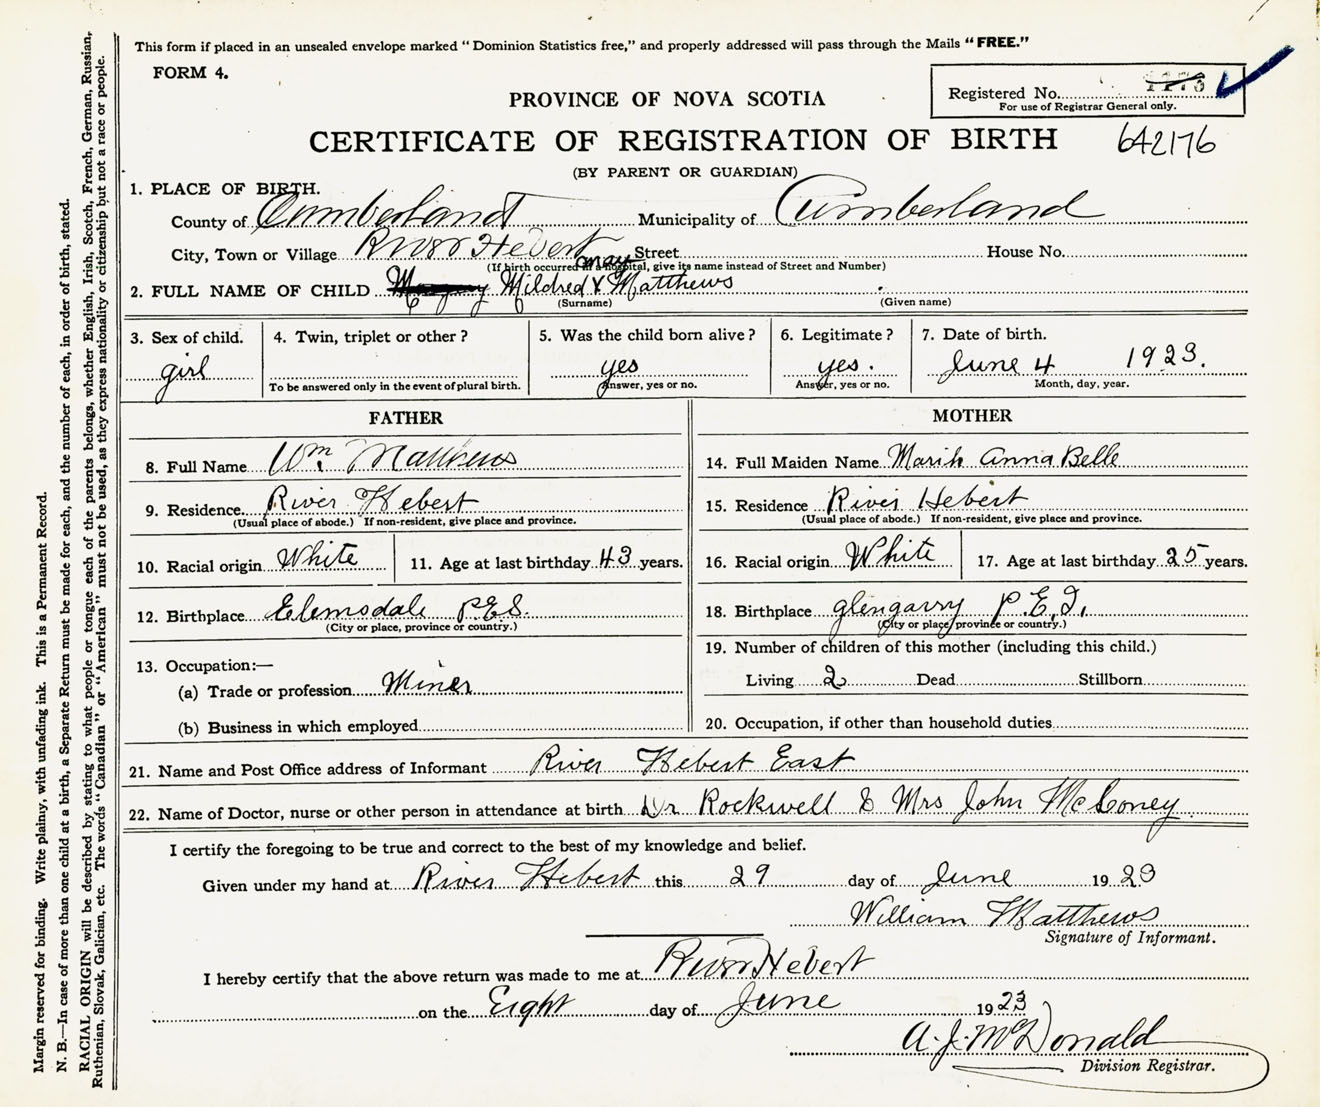 This form if placed in an unsealed envelope marked "Dominion Statistics free," and properly addressed will pass through the Mails "FREE."
FORM 4.
Registered No.
For use of Registrar General only.
PROVINCE OF NOVA SCOTIA
CERTIFICATE OF REGISTRATION OF BIRTH 642176
(BY PARENT OR GUARDIAN)
1. PLACE OF BIRTH.
County of Cumberland Municipality of Cumberland
City, Town or Village River Hebert Street House No.
(If birth occurred in a hospital, give its name instead of Street and Number)
may
2. FULL NAME OF CHILD Mildred Matthews
(Surname) (Given name)
3. Sex of child. 4. Twin, triplet or other? 5. Was the child born alive? 6. Legitimate? 7. Date of birth.
girl yes yes. June 4 1923.
To be answered only in the event of plural birth. Answer, yes or no. Answer, yes or no. Month, day, year.
FATHER
8. Full Name Wm. Matthews
9. Residence River Hebert
(Usual place of abode.) If non-resident, give place and province.
10. Racial origin White 11. Age at last birthday 43 years.
12. Birthplace Elemsdale P.E.I.
(City or place, province or country.)
13. Occupation:—
(a) Trade or profession Miner
(b) Business in which employed
MOTHER
14. Full Maiden Name Anna Belle
15. Residence River Hebert
(Usual place of abode.) If non-resident, give place and province.
16. Racial origin White 17. Age at last birthday 25 years.
18. Birthplace glengarry P.E.I.
(City or place, province or country.)
19. Number of children of this mother (including this child.)
Living 2 Dead Stillborn
20. Occupation, if other than household duties
21. Name and Post Office address of Informant River Hebert East
22. Name of Doctor, nurse or other person in attendance at birth Dr Rockwell & Mrs John McConey
I certify the foregoing to be true and correct to the best of my knowledge and belief.
Given under my hand at River Hebert this 29 day of June 1923
William Matthews
Signature of Informant.
I hereby certify that the above return was made to me at River Hebert
on the Eight day of June 1923
A. J. McDonald
Division Registrar.
Margin reserved for binding. Write plainly, with unfading ink. This is a Permanent Record.
N. B.—In case of more than one child at a birth, a Separate Return must be made for each, and the number of each, in order of birth, stated.
RACIAL ORIGIN will be described by stating to what people or tongue each of the parents belongs, whether English, Irish, Scotch, French, German, Russian,
Ruthenian, Slovak, Galician, etc. The words "Canadian" or "American" must not be used, as they express nationality or citizenship but not a race or people.